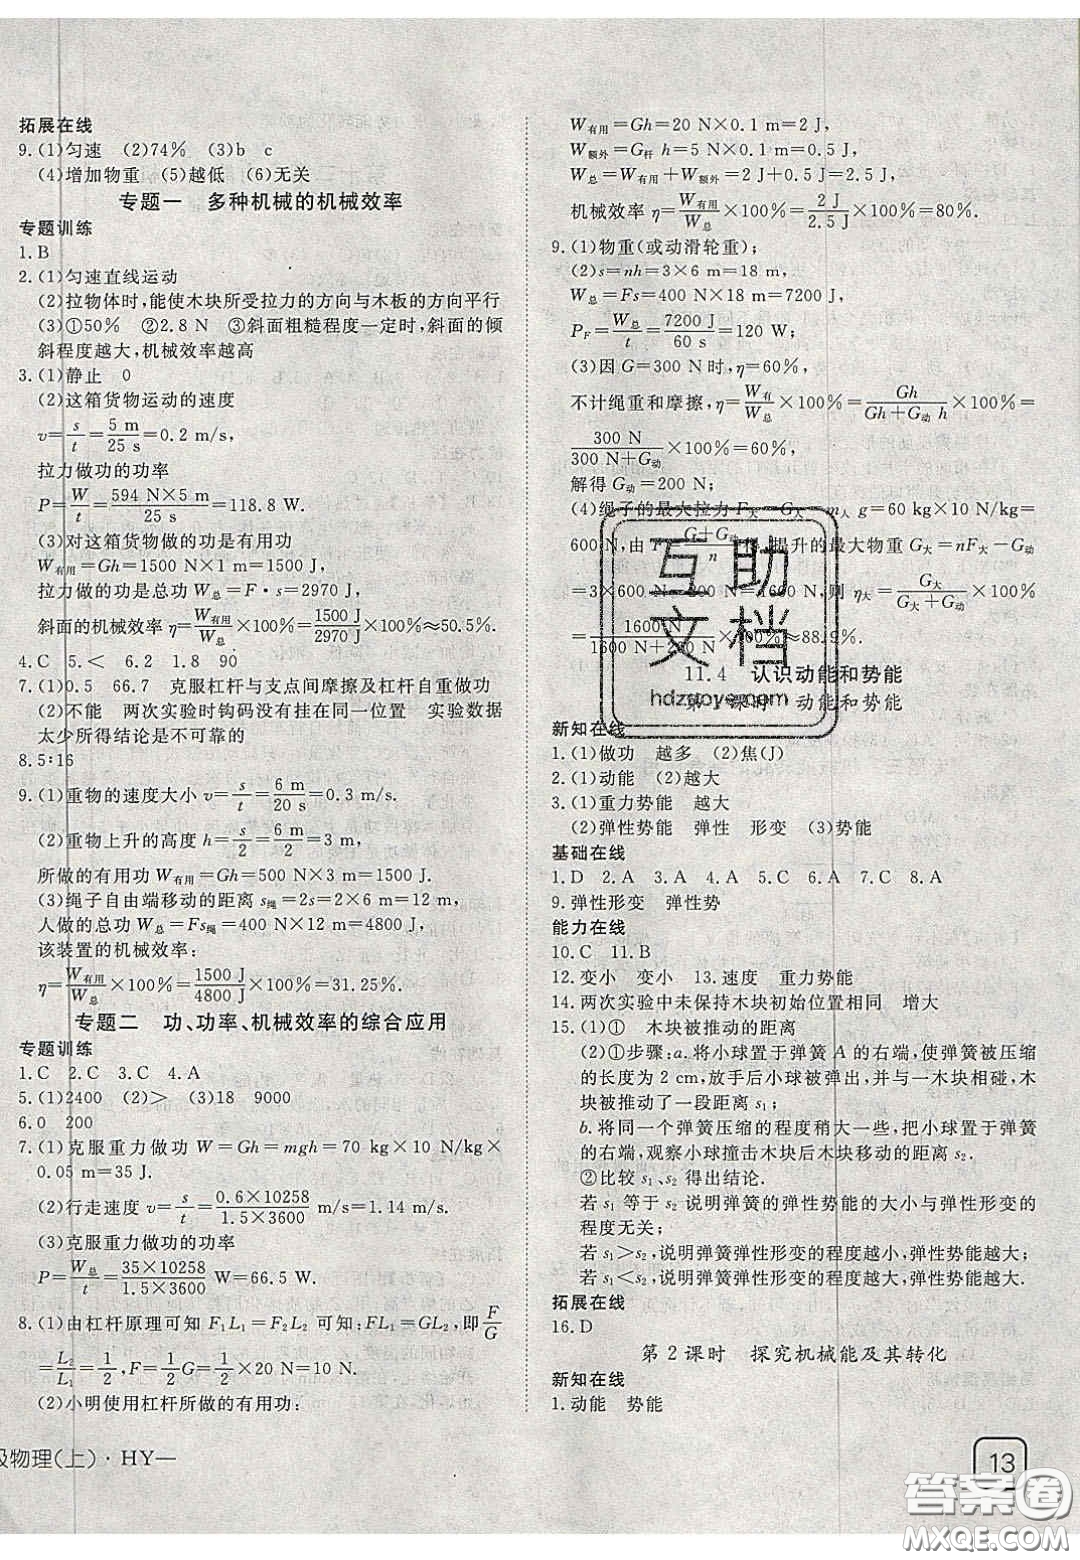 拓展在线
9.(1)匀速 (2)74% (3)b c
(4)增加物重 (5)越低 (6)无关
专题一 多种机械的机械效率
专题训练
1.B
2.(1)匀速直线运动
(2)拉物体时,能使木块所受拉力的方向与木板的方向平行
(3)①50% ②2.8 N ③斜面粗糙程度一定时,斜面的倾
斜程度越大,机械效率越高
3.(1)静止 0
(2)这箱货物运动的速度
v=s/t=5 m/25 s=0.2 m/s,
拉力做功的功率
P=W/t=594 N×5 m/25 s=118.8 W.
(3)对这箱货物做的功是有用功
W有用=Gh=1500 N×1 m=1500 J,
拉力做的功是总功 W总=F·s=2970 J,
斜面的机械效率 η=W有用/W总×100%=1500 J/2970 J×100%≈50.5%.
4.C 5.< 6.2 1.8 90
7.(1)0.5 66.7 克服杠杆与支点间摩擦及杠杆自重做功
(2)不能 两次实验时钩码没有挂在同一位置 实验数据
太少所得结论是不可靠的
8.5:16
9.(1)重物的速度大小 v=s/t=6 m/20 s=0.3 m/s.
(2)重物上升的高度 h=s/2=6 m/2=3 m,
所做的有用功 W有用=Gh=500 N×3 m=1500 J.
(3)绳子自由端移动的距离 s绳=2s=2×6 m=12 m,
人做的总功 W总=Fs绳=400 N×12 m=4800 J
该装置的机械效率:
η=W有用/W总×100%=1500 J/4800 J×100%=31.25%.
专题二 功、功率、机械效率的综合应用
专题训练
1.C 2.C 3.C 4.A
5.(1)2400 (2)> (3)18 9000
6.0 200
7.(1)克服重力做功 W=Gh=mgh=70 kg×10 N/kg×
0.05 m=35 J.
(2)行走速度 v=s/t=0.6×10258/1.5×3600 m/s=1.14 m/s.
(3)克服重力做功的功率
P=W总/t=35×10258/1.5×3600 W=66.5 W.
8.(1)由杠杆原理可知 F1L1=F2L2 可知:FL1=GL2,即F/G
=L2/L1=1/2,F=1/2G=1/2×20 N=10 N.
(2)小明使用杠杆所做的有用功:
级物理(上)·HY—
W有用=Gh=20 N×0.1 m=2 J,
W额外=G杆 h=5 N×0.1 m=0.5 J,
W总=W有用+W额外=2 J+0.5 J=2.5 J,
机械效率 η=W有用/W总×100%=2 J/2.5 J×100%=80%.
9.(1)物重(或动滑轮重);
(2)s=nh=3×6 m=18 m,
W总=Fs=400 N×18 m=7200 J,
PF=W总/t=7200 J/60 s=120 W;
(3)因 G=300 N 时,η=60%,
不计绳重和摩擦,η=W有/W总×100%=Gh/Gh+G动 h×100%=
300 N/300 N+G动×100%=60%,
解得 G动=200 N;
(4)绳子的最大拉力 F大=G人=m人 g=60 kg×10 N/kg=
600 N,由 F=G+G动/n 提升的最大物重 G大=nF大-G动
=3×600 N-200 N=1600 N,则 η大=G大/G大+G动×100%
=1600 N/1600 N+200 N×100%≈88.9%.
11.4 认识动能和势能
第1课时 动能和势能
新知在线
1.(1)做功 越多 (2)焦(J)
2.(1)动能 (2)越大
3.(1)重力势能 越大
(2)弹性势能 弹性 形变 (3)势能
基础在线
1.D 2.A 3.A 4.A 5.C 6.A 7.C 8.A
9.弹性形变 弹性势
能力在线
10.C 11.B
12.变小 变小 13.速度 重力势能
14.两次实验中未保持木块初始位置相同 增大
15.(1)① 木块被推动的距离
(2)①步骤:a.将小球置于弹簧 A 的右端,使弹簧被压缩
的长度为 2 cm,放手后小球被弹出,并与木块相碰,木
块被推动了一段距离 s1;
b.将同一个弹簧压缩的程度稍大一些,把小球置于弹簧
的右端,观察小球撞击木块后木块移动的距离 s2.
②比较 s1、s2 得出结论.
若 s1 等于 s2 说明弹簧的弹性势能的大小与弹性形变的
程度无关;
若 s1>s2,说明弹簧弹性形变的程度越小,弹性势能越大;
若 s1<s2,说明弹簧弹性形变的程度越大,弹性势能越大.
拓展在线
16.D
第2课时 探究机械能及其转化
新知在线
1.动能 势能
13
互助
文档
hdzuoye.com
答案圈
MXQE.COM